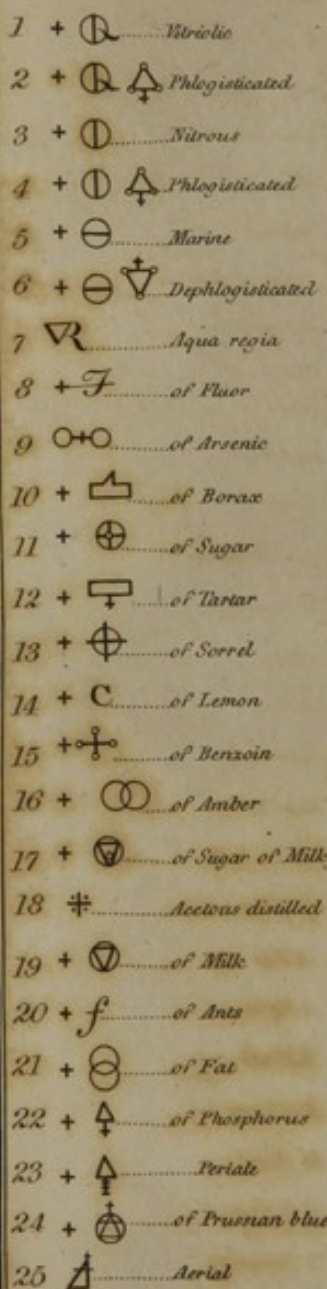 1 + Vitriolic
2 + Phlogisticated
3 + Nitrous
4 + Phlogisticated
5 + Marine
6 + Dephlogisticated
7 R Aqua regia
8 + F of Fluor
9 of Arsenic
10 + of Borax
11 + of Sugar
12 + of Tartar
13 + of Sorrel
14 + C of Lemon
15 + of Benzoin
16 + of Amber
17 + of Sugar of Milk
18 Acetous distilled
19 + of Milk
20 + f of Ants
21 + of Fat
22 + of Phosphorus
23 + Perlate
24 + of Prussian blue
25 Aerial